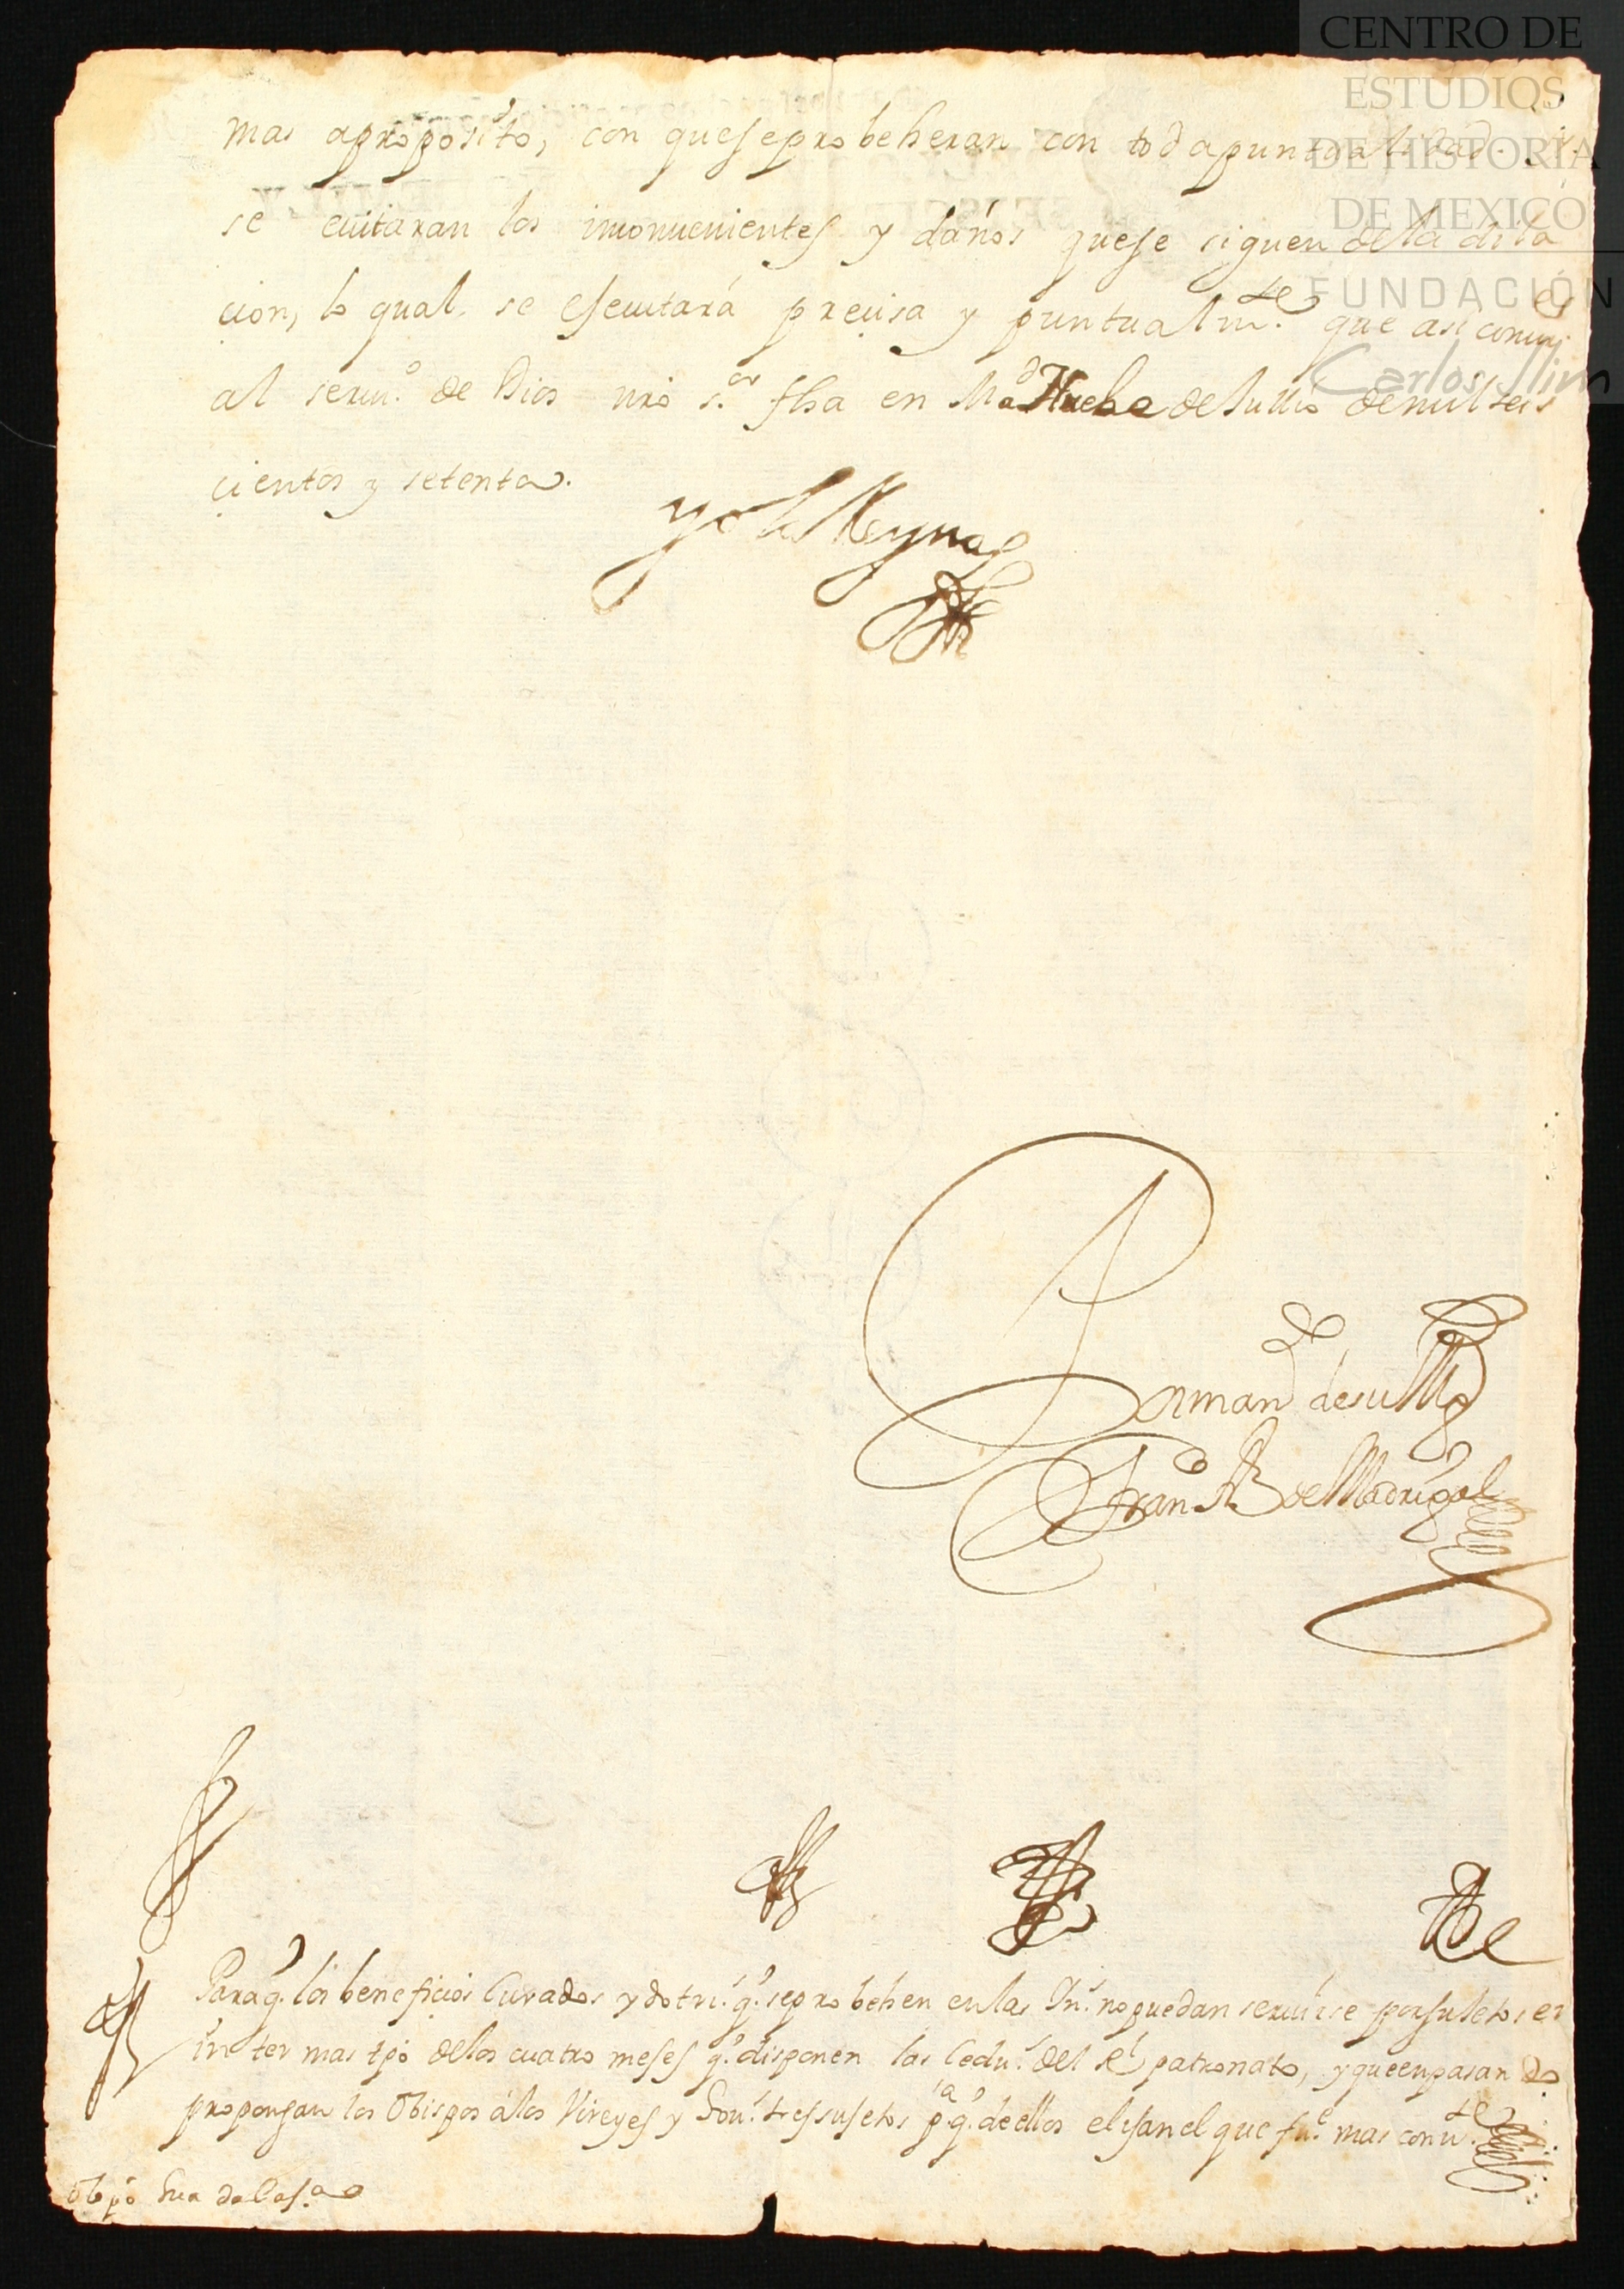 CENTRO DE
ESTUDIOS
DE HISTORIA
DE MEXICO
FUNDACIÓN
Carlos Slim
mas aproposito, con quese probeheran con toda puntualidad. y.
se euitaran los inconuenientes y daños quese siguen dela dila
cion, lo qual se esecutará precisa y puntualm.te que asi conui.
al seru.o de Dios nro s.or fha en Md a Nuebe de Jullio de mil seis
cientos y setenta.
yo la Reyna
Por mand.do de su Mg.d
Fran.co de Madrigal
Para q.e los beneficios Curados y dotri.s q.e se probehen en las Yn.s no puedan seruirse por suietos en
inter mas tpo delos cuatro meses q.e disponen las Cedu.s del Rl patronato, y que en pasando
propongan los Obispos álos Vireyes y Gou.s tres sujetos p.a q.e de ellos elijan el que fu.e mas conu.te
obpo Guadalax.a